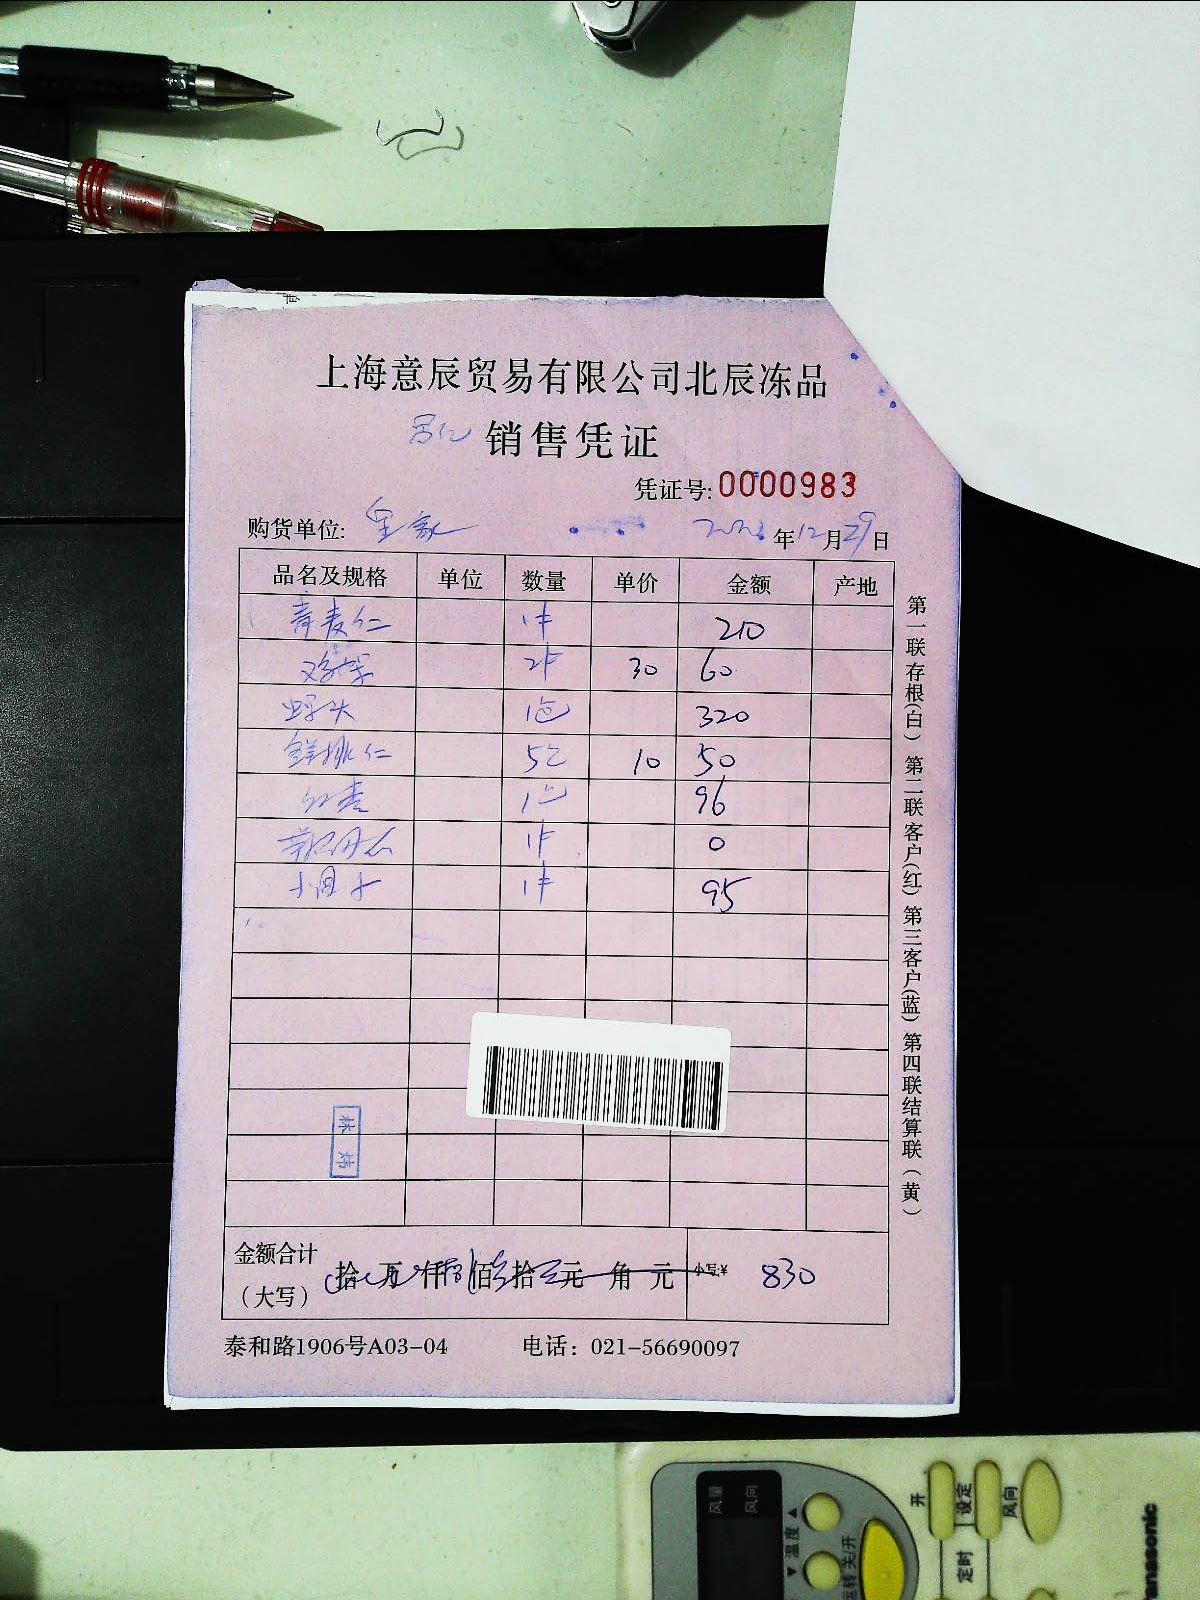 上海意辰贸易有限公司北辰冻品
销售凭证
凭证号:0000983
购货单位: 年12月29日
品名及规格 单位 数量 单价 金额 产地
青麦仁 1件 210
2件 30 60
1包 320
仁 5包 10 50
红枣 1包 96
1件 0
1件 95
金额合计
(大写) 拾 万 仟 佰 拾 元 角 元 小写:¥ 830
泰和路1906号A03-04 电话: 021-56690097
第一联存根(白) 第二联客户(红) 第三客户(蓝) 第四联结算联(黄)
林
风量 风向
温度
运转 关/开
开
设定
风向
定时
Panasonic